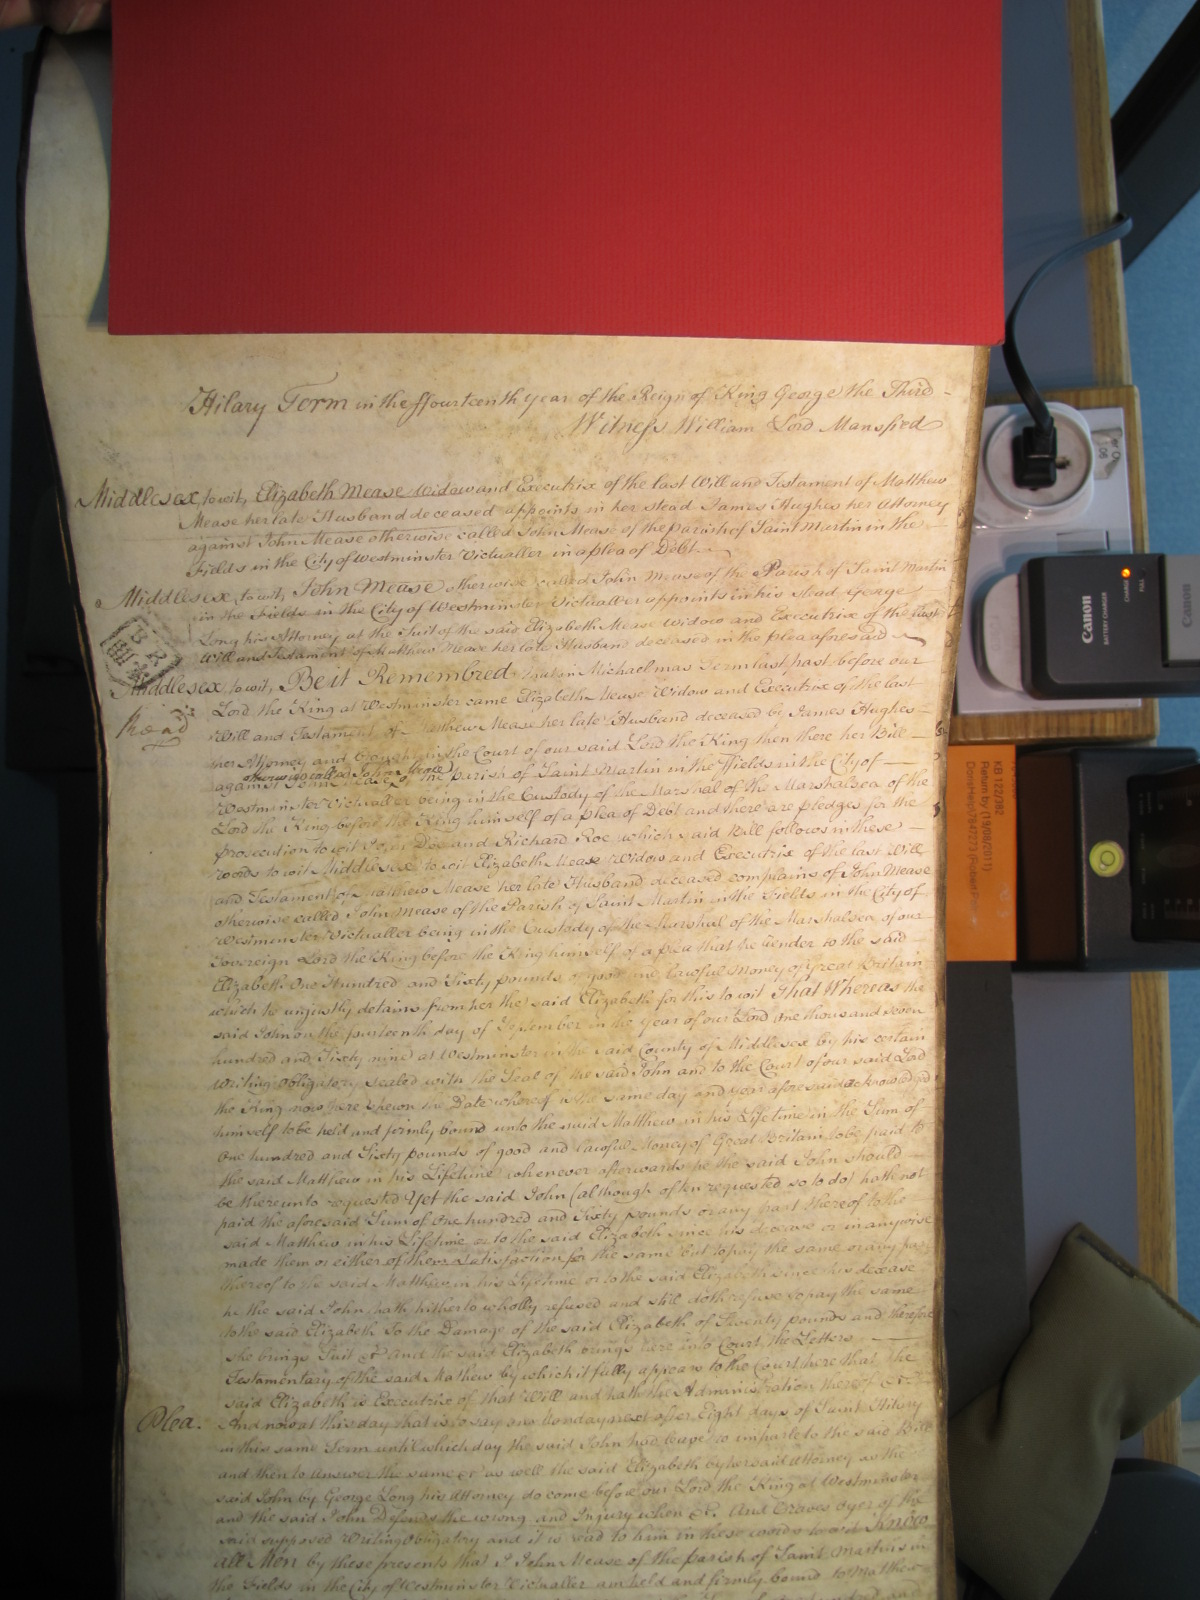 Hilary Term in the ffourteenth year of the Reign of King George the Third
Witness William Lord Mansfield
Middlesex, to wit, Elizabeth Mease Widow and Executrix of the last Will and Testament of Matthew
Mease her late Husband deceased appoints in her stead James Hughes her Attorney
against John Mease otherwise called John Mease of the parish of Saint Martin in the
Fields in the City of Westminster Victualler in a plea of Debt
Middlesex, to wit, John Mease otherwise called John Mease of the Parish of Saint Martin
in the Fields in the City of Westminster Victualler appoints in his stead George
Long his Attorney at the Suit of the said Elizabeth Mease Widow and Executrix of the last
Will and Testament of Matthew Mease her late Husband deceased in the plea aforesaid
Middlesex, to wit, Be it Remembred that in Michaelmas Term last past before our
Lord the King at Westminster came Elizabeth Mease Widow and Executrix of the last
Will and Testament of Matthew Mease her late Husband deceased by James Hughes
her Attorney and brought in the Court of our said Lord the King then there her Bill
otherwise called John Mease
against John Mease of the parish of Saint Martin in the ffields in the City of
Westminster Victualler being in the Custody of the Marshal of the Marshalsea of the
Lord the King before the King himself of a plea of Debt and there are pledges for the
prosecution to wit John Doe and Richard Roe which said Bill follows in these
words to wit Middlesex to wit Elizabeth Mease Widow and Executrix of the last Will
and Testament of Matthew Mease her late Husband deceased complains of John Mease
otherwise called John Mease of the Parish of Saint Martin in the Fields in the City of
Westminster Victualler being in the Custody of the Marshal of the Marshalsea of our
Sovereign Lord the King before the King himself of a plea that he render to the said
Elizabeth One Hundred and Sixty pounds of good and lawful Money of Great Britain
which he unjustly detains from her the said Elizabeth for this to wit That Whereas the
said John on the fourteenth day of September in the year of our Lord One thousand seven
hundred and Sixty nine at Westminster in the said County of Middlesex by his certain
writing Obligatory sealed with the Seal of the said John and to the Court of our said Lord
the King now here shewn the Date whereof is the same day and year aforesaid acknowledged
himself to be held and firmly bound unto the said Matthew in his Lifetime in the Sum of
One hundred and Sixty pounds of good and lawful Money of Great Britain to be paid to
the said Matthew in his Lifetime whenever afterwards he the said John should
be thereunto requested Yet the said John (although often requested so to do) hath not
paid the aforesaid Sum of One hundred and Sixty pounds or any part thereof to the
said Matthew in his Lifetime or to the said Elizabeth since his decease or in anywise
made them or either of them Satisfaction for the same but to pay the same or any part
thereof to the said Matthew in his Lifetime or to the said Elizabeth since his decease
he the said John hath hitherto wholly refused and still doth refuse to pay the same
to the said Elizabeth To the Damage of the said Elizabeth of Twenty pounds and therefore
she brings Suit &c And the said Elizabeth brings here into Court the Letters
Testamentary of the said Mathew by which it fully appears to the Court here that the
said Elizabeth is Executrix of that Will and hath the Administration thereof &c
Plea. And now at this day that is to say on Monday next after Eight days of Saint Hilary
in this same Term until which day the said John had leave to imparle to the said Bill
and then to answer the same &c as well the said Elizabeth by her said Attorney as the
said John by George Long his Attorney do come before our Lord the King at Westminster
and the said John Defends the wrong and Injury when &c. And Craves oyer of the
said supposed Writing Obligatory and it is read to him in these words to wit Know
all Men by these presents that I John Mease of the parish of Saint Martins in
the Fields in the City of Westminster Victualler am held and firmly bound to Matthew
Canon
BATTERY CHARGER
CHARGE
FULL
Canon
KB 122/392
Return by (19/08/2011)